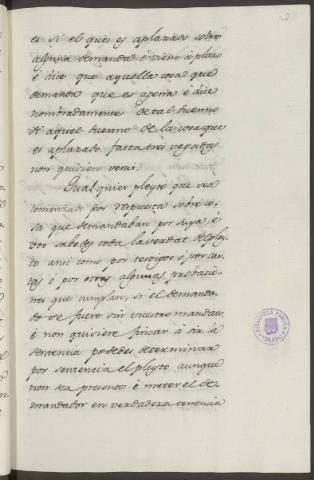 es si el que es aplazado sobre
alguna demanda é viene á plazo
é dice que aquella cosa quel
demanda que es agena é dice
nombradamente de tal huemo
de aquel huemo de la cosa que
es aplazado fasta tres vegadas
non quisier venir.
Qual quier pleyto que sea
comenzado por respuesta sobre co-
sa que demandaban por suya é
vos sabedes toda la verdat del pley-
to ansi como por testigos ó por car-
tas ó por otras algunas probacio-
nes que cumplan, si el demanda-
do se fuere sin vuestro mandado
é non quisiere fincar á oir la
sentencia podedes determinar
por sentencia el pleyto aunque
non sea presente é meter el de-
mandador en verdadera tenencia
BIBLIOTECA PÚBLICA
TOLEDO